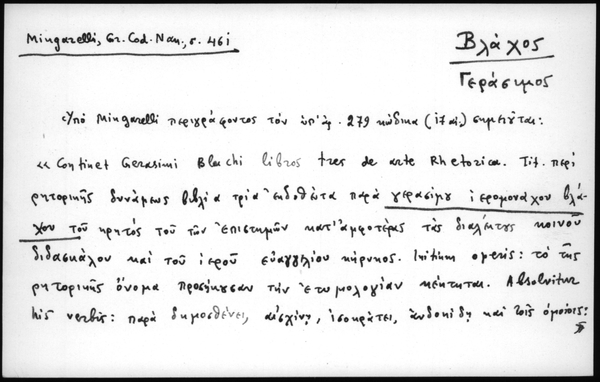 Mingarelli, Gr. Cod. Nan., σ. 461
Βλάχος
Γεράσιμος
Ὑπὸ Mingarelli περιγράφοντος τὸν ὑπ' ἀρ. 279 κώδικα (17 αἰ.) σημειοῦται:
«Continet Gerasimi Blachi libros tres de arte Rhetorica. Tit. περὶ
ρητορικῆς δυνάμεως βιβλία τρία ἐκδοθέντα παρὰ γερασίμου ἱερομονάχου βλά-
χου τοῦ κρητὸς τοῦ τῶν ἐπιστημῶν κατ' ἀμφοτέρας τὰς διαλέκτους κοινοῦ
διδασκάλου καὶ τοῦ ἱεροῦ εὐαγγελίου κήρυκος. Initium operis: τὸ τῆς
ρητορικῆς ὄνομα προσήκουσαν τὴν ἐτυμολογίαν κέκτηται. Absolvitur
his verbis: παρὰ δημοσθένει, αἰσχίνῃ, ἰσοκράτει, ἀνδοκίδῃ καὶ τοῖς ὁμοίοις: